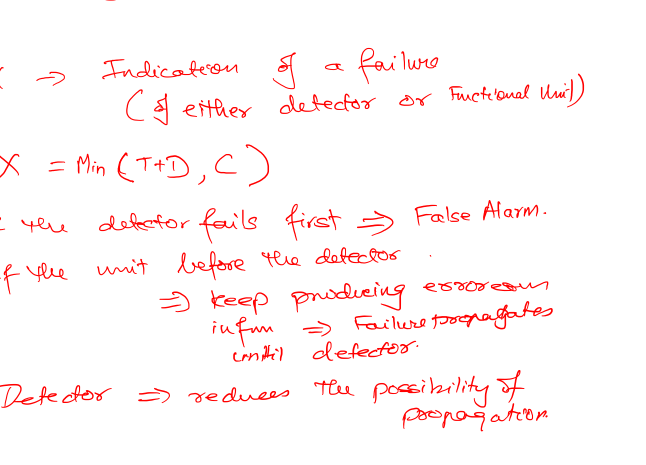 ⇒ Indication of a failure
(of either detector or Functional Unit)
X = Min (T+D, C)
the detector fails first ⇒ False Alarm.
If the unit before the detector.
⇒ keep producing erroreous
infom ⇒ Failure propagates
until detector.
Detector ⇒ reduces the possibility of
propagation